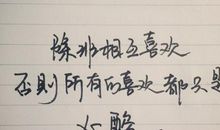 除非相互喜欢
否则所有的喜欢都只是
心酸